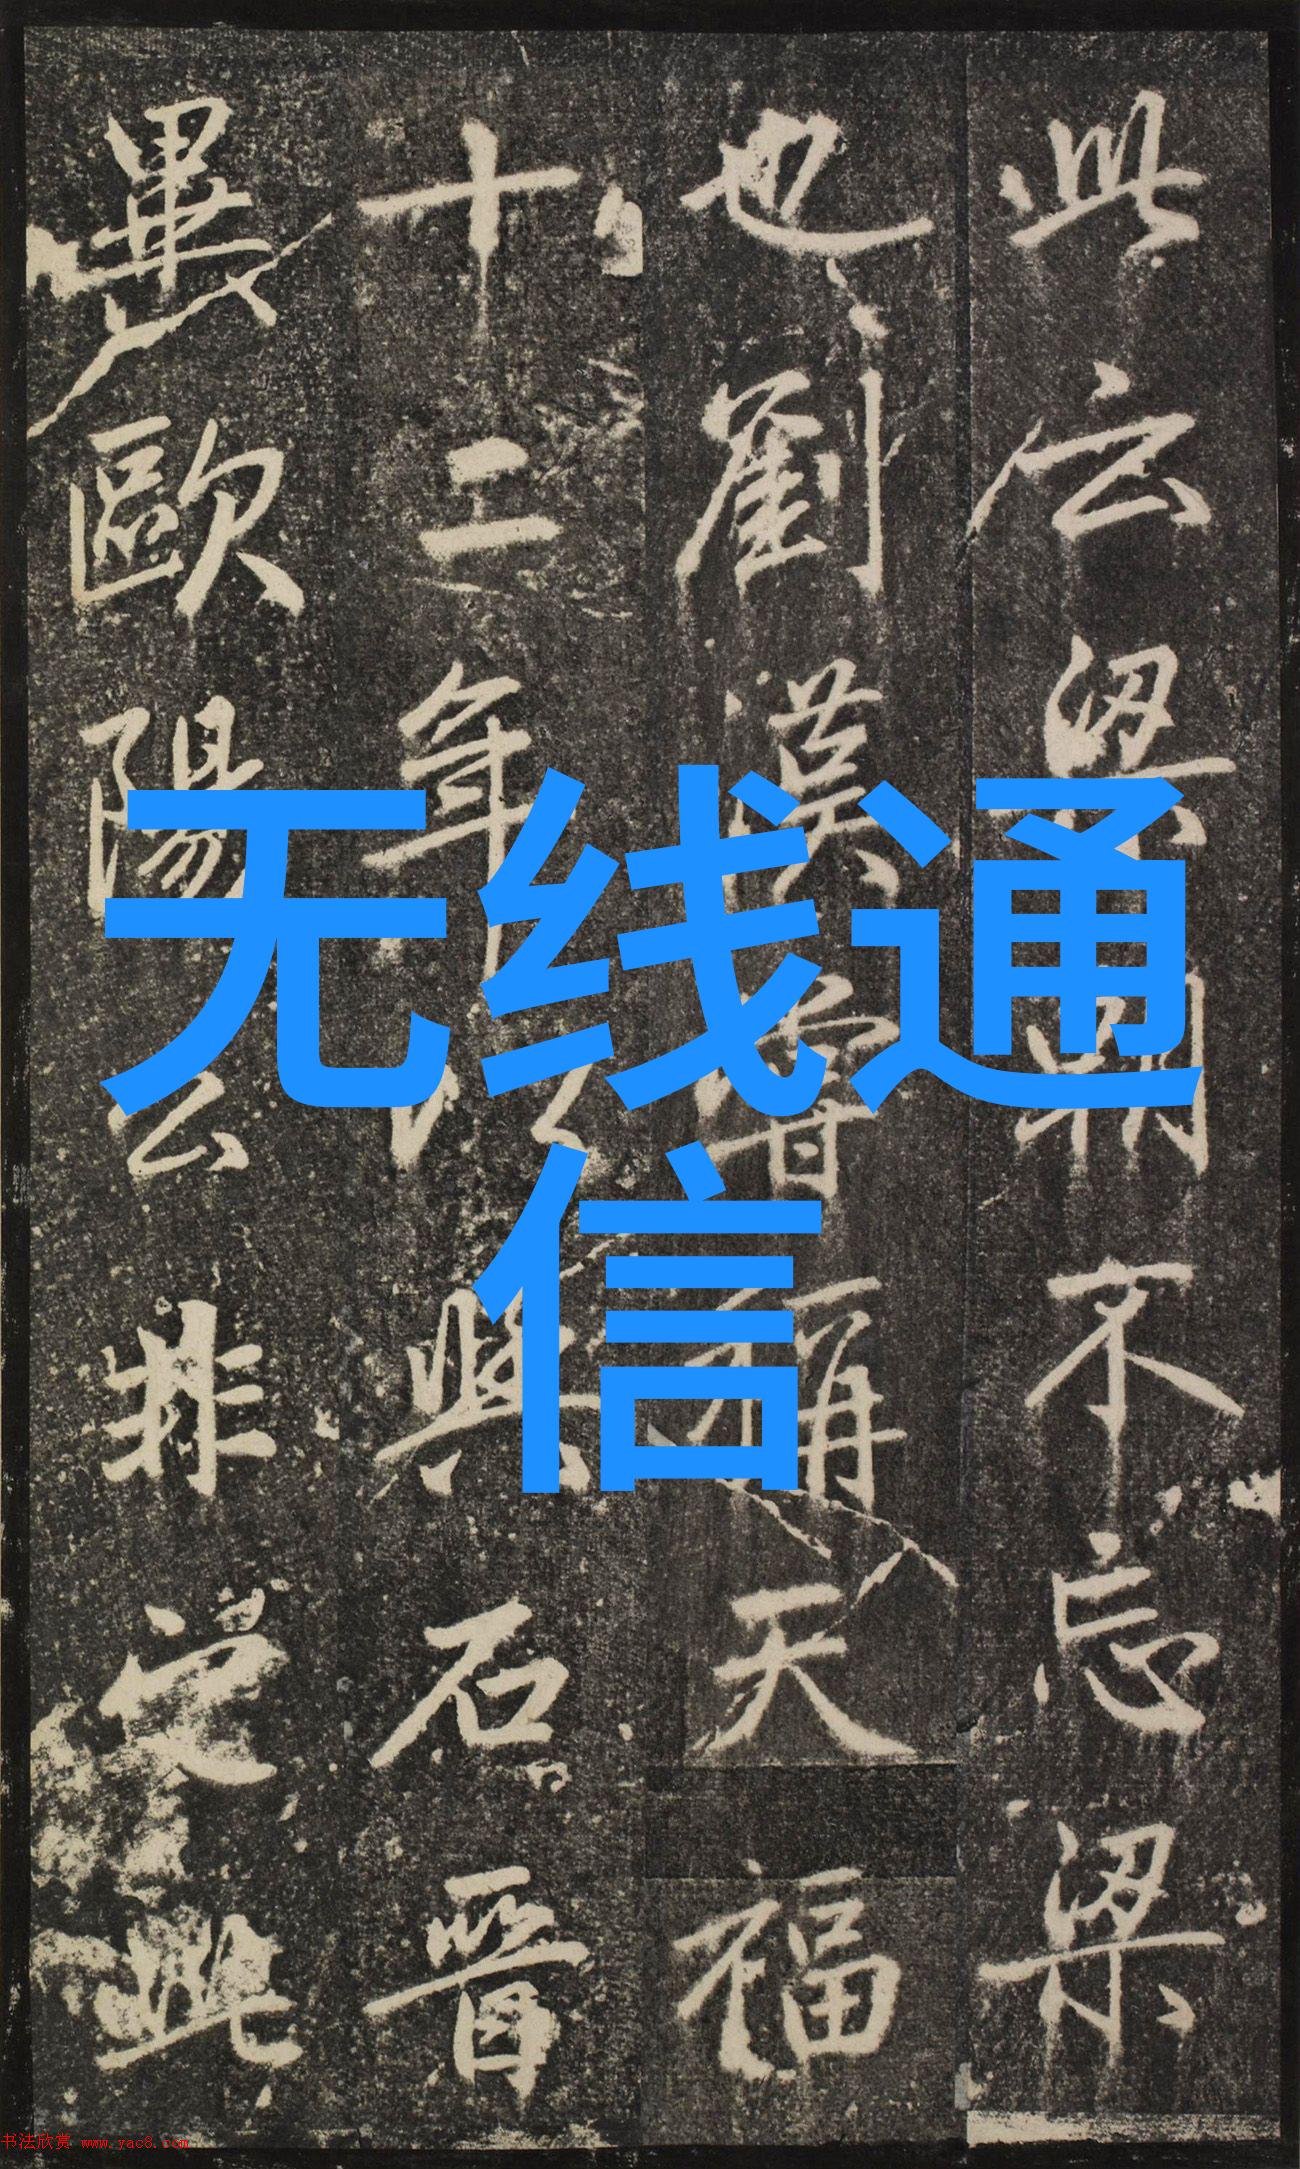 此云梁朝不忘梁
也劉漢稱天福
十二年以與石晉
畢歐陽公非此
无线通
信
书法欣赏 www.yac8.com